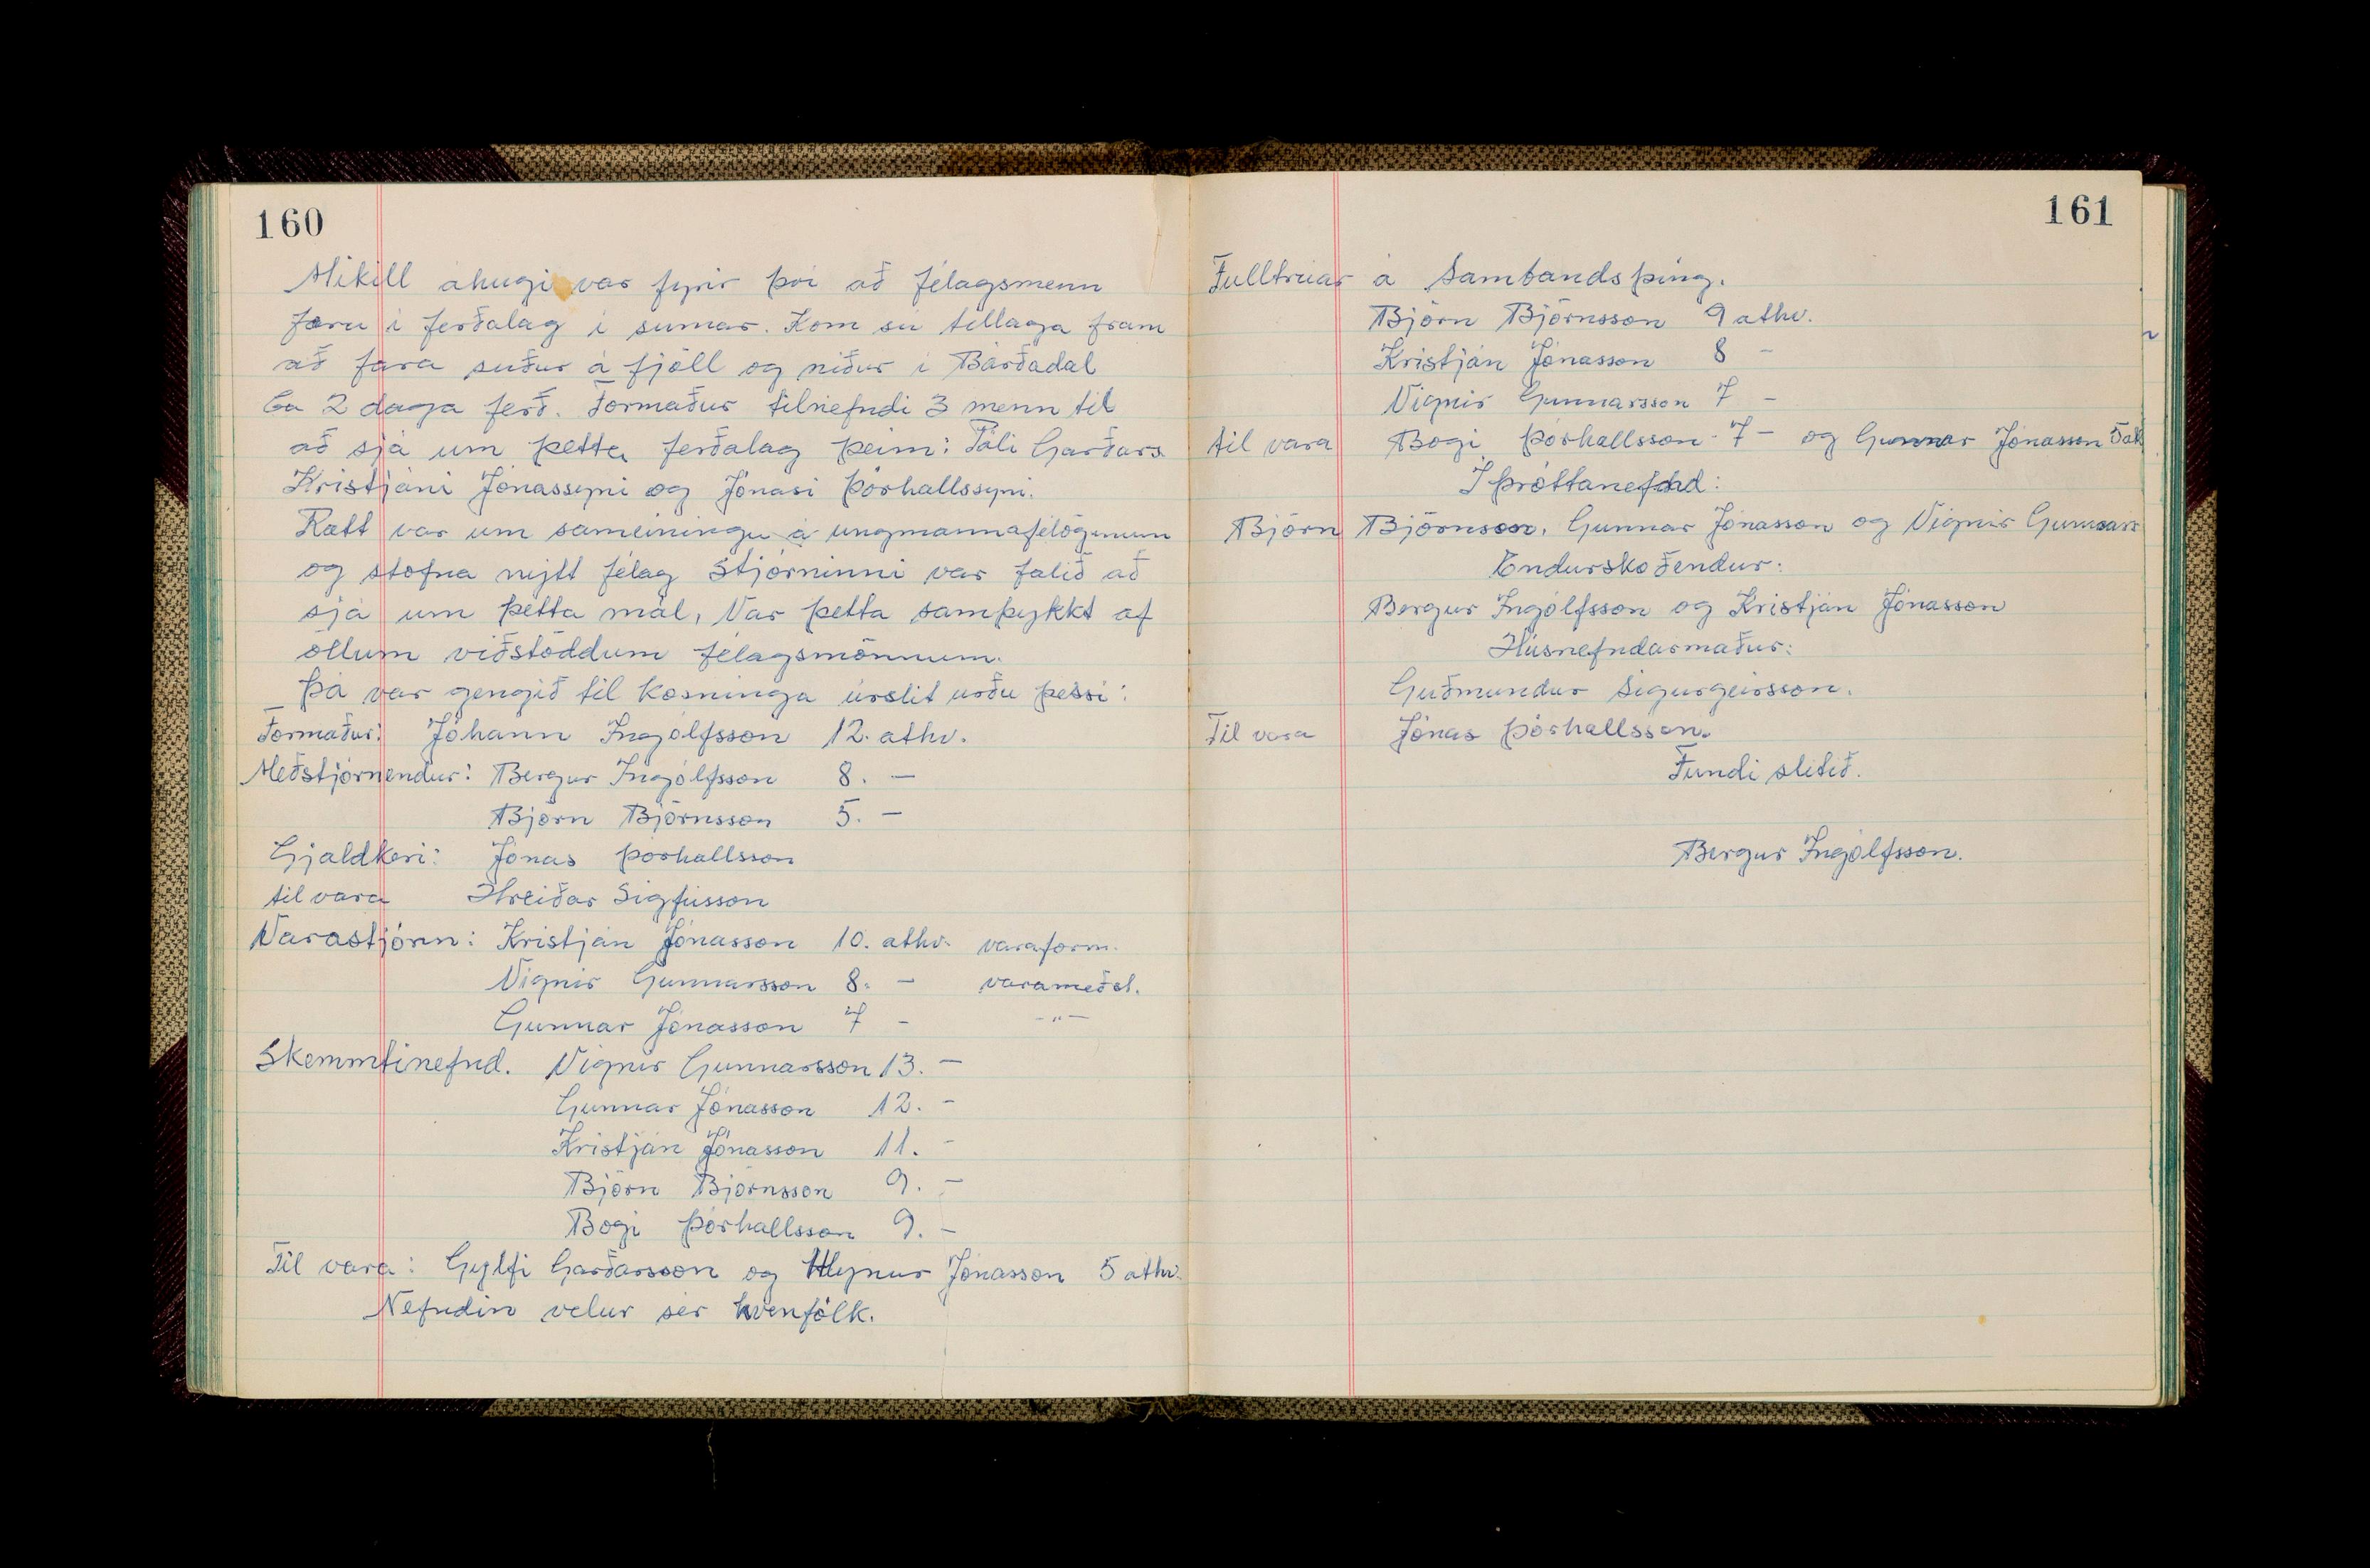 160
Mikill áhugi var fyrir því að félagsmenn
færu í ferðalag í sumar. Kom sú tillaga fram
að fara suður á fjöll og niður í Bárðadal
Ca 2 daga ferð. Formaður tilnefndi 3 menn til
að sjá um þetta ferðalag þeim: Páli Garðars
Kristjáni Jónassyni og Jónasi Þórhallssyni.
Rætt var um sameiningu á ungmannafélögunum
og stofna nýtt félag Stjórninni var falið að
sjá um þetta mál, Var þetta samþykkt af
öllum viðstöddum félagsmönnum.
Þá var gengið til kosninga úrslit urðu þessi:
Formaður: Jóhann Ingólfsson 12. athv.
Meðstjórnendur: Bergur Ingólfsson 8. —
Björn Björnsson 5. —
Gjaldkeri: Jónas Þórhallsson
til vara Hreiðar Sigfússon
Varastjórn: Kristján Jónasson 10. athv. varaform.
Vignir Gunnarsson 8. — varameðst.
Gunnar Jónasson 7 — —"—
Skemmtinefnd. Vignir Gunnarsson 13. —
Gunnar Jónasson 12. —
Kristján Jónasson 11. —
Björn Björnsson 9. —
Bogi Þórhallsson 9. —
Til vara: Gylfi Garðarsson og Hlynur Jónasson 5 athv.
Nefndin velur sér kvenfólk.
161
Fulltrúar á Sambandsþing.
Björn Björnsson 9 athv.
Kristján Jónasson 8 —
Vignir Gunnarsson 7 —
til vara Bogi Þórhallsson 7 — og Gunnar Jónasson 5 at
Íþróttanefnd:
Björn Björnsson, Gunnar Jónasson og Vignir Gunnarss
Endurskoðendur:
Bergur Ingólfsson og Kristján Jónasson
Húsnefndarmaður:
Guðmundur Sigurgeirsson.
Til vara Jónas Þórhallsson.
Fundi slitið.
Bergur Ingólfsson.